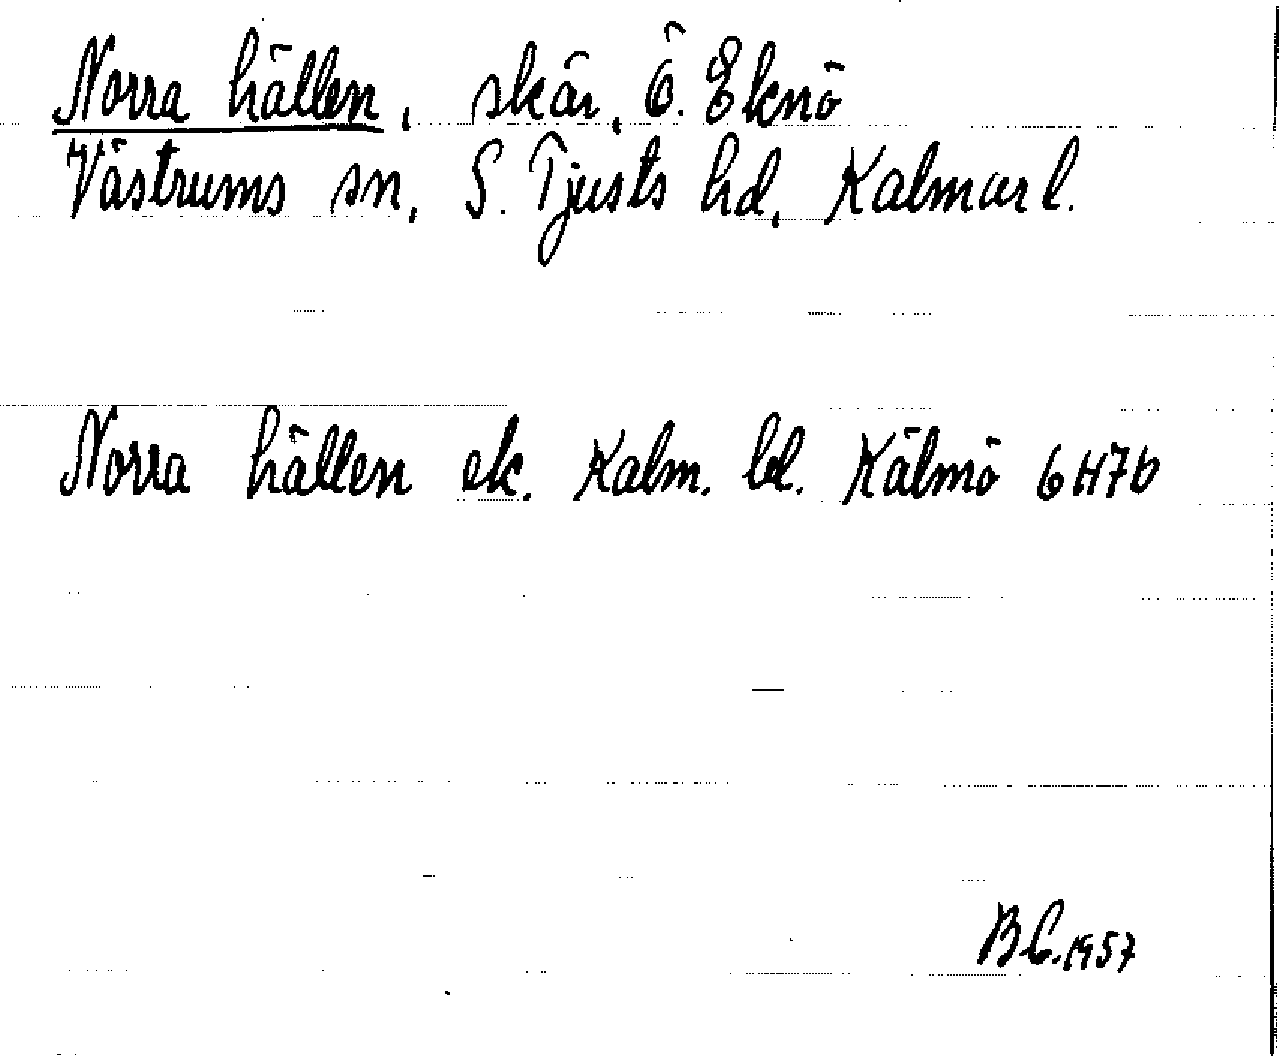 Norra hällen, skär, Ö. Eknö
Västrums sn, S. Tjusts hd, Kalmar l.
Norra hällen ek. Kalm. bl. Kälmö 6H7b
BC. 1957